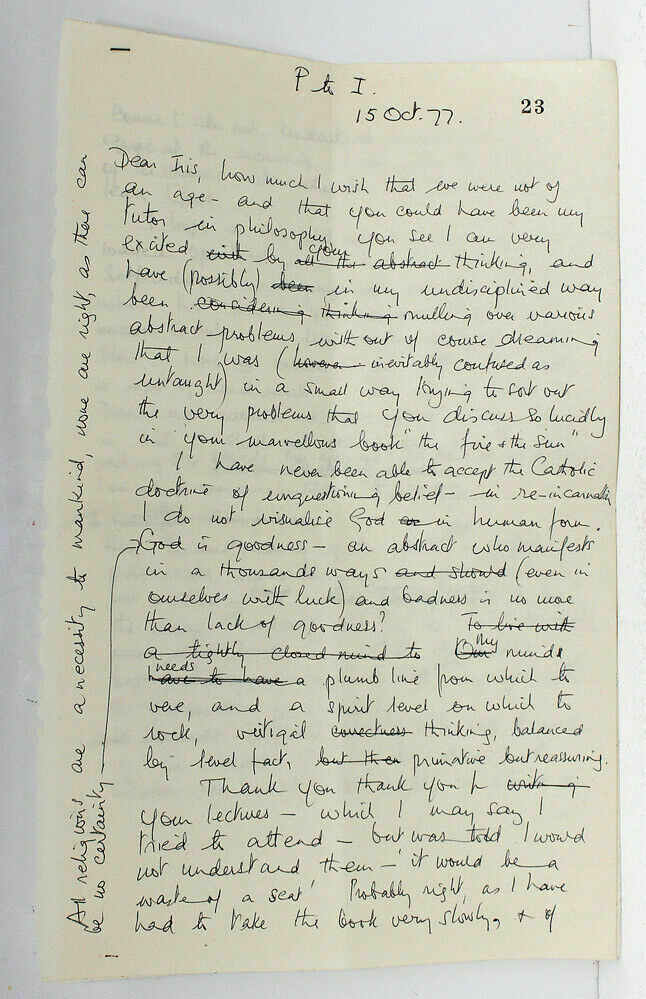 P to I.
15 Oct. 77.
23
Dear Iris, how much I wish that we were not of
an age - and that you could have been my
tutor in philosophy you see I am very
excited with by all the your abstract thinking, and
have (possibly) been in my undisciplined way
been considering thinking mulling over various
abstract problems, without of course dreaming
that I was (however inevitably confused as
untaught) in a small way longing to sort out
the very problems that you discuss so lucidly
in your marvellous book "the fire & the sun"
I have never been able to accept the Catholic
doctrine of unquestioning belief - in re-incarnation
I do not visualise God as in human form.
God is goodness - an abstract who manifests
in a thousands ways and should (even in
ourselves with luck) and badness is no more
than lack of goodness? To live with
a tightly closed mind to Our my minds
needs have to have a plumb line from which to
veer, and a spirit level on which to
rock, vertigal correctness thinking, balanced
by level fact, but then primative but reassuring.
Thank you thank you for writing
your lectures - which I may say, I
tried to attend - but was told I would
not understand them - 'it would be a
waste of a seat' Probably right, as I have
had to take the book very slowly, & of
All religions are a necessity to mankind, none are right, as there can
be no certainty